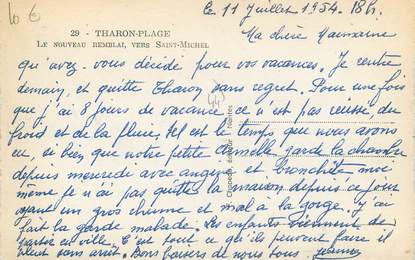 10 €
Le 11 Juillet 1954. 18h.
29 - THARON-PLAGE
LE NOUVEAU REMBLAI, VERS SAINT-MICHEL
Ma chère Marraine
qu'avez-vous décidé pour vos vacances. Je rentre
demain, et quitte Tharon sans regret. Pour une fois
que j'ai 8 jours de vacance ce n'est pas réussi, du
froid et de la pluie, tel est le temps que nous avons
eu, si bien que notre petite garde la chambre
depuis mercredi avec angine et bronchite, moi
même je n'ai pas quitté la maison depuis ce jour
ayant un gros rhume et mal à la gorge. J'ai
fait la garde malade. Les enfants viennent de
partir en ville. C'est tout ce qu'ils peuvent faire il
pleut sans arrêt. Bons baisers de nous tous.
44
Nantes